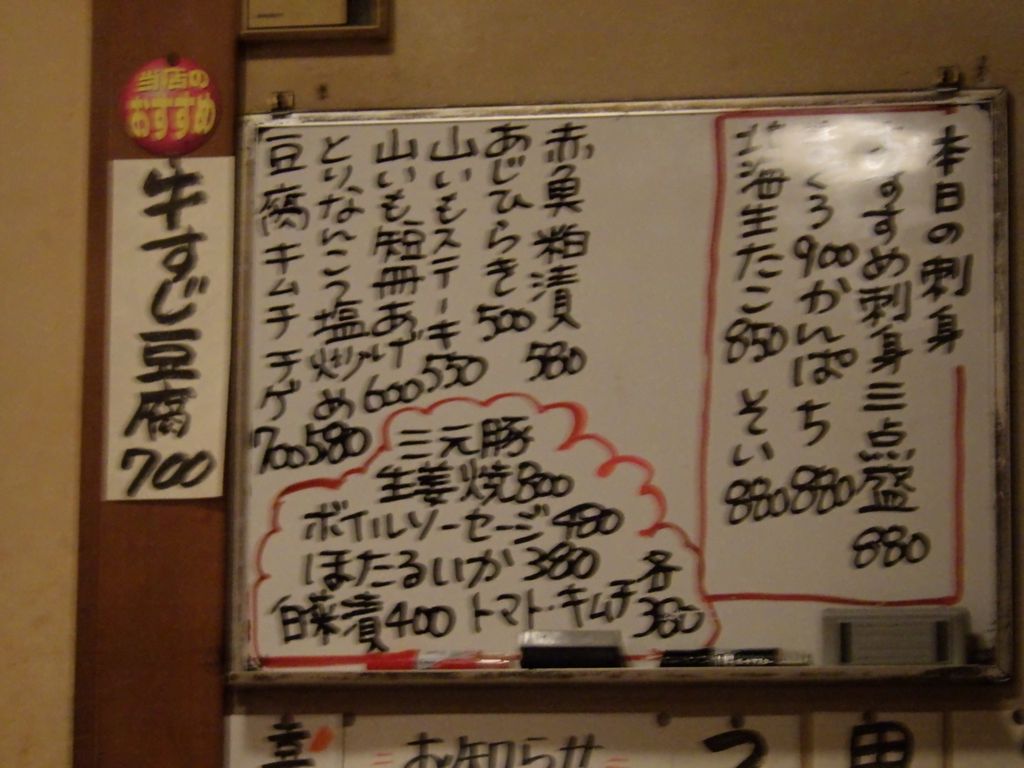 当店の
おすすめ
牛すじ豆腐
700
本日の刺身
すすめ刺身三点盛 880
ぐろ 900 かんぱち 880
北海生たこ 850 そい 880
赤魚粕漬 580
あじひらき 500
山いもステーキ 550
山いも短冊あげ 600
とりなんこつ塩炒め 580
豆腐キムチチゲ 700
三元豚
生姜焼800
ボイルソーセージ480
ほたるいか380
白菜漬400 トマト・キムチ各380
お知らせ